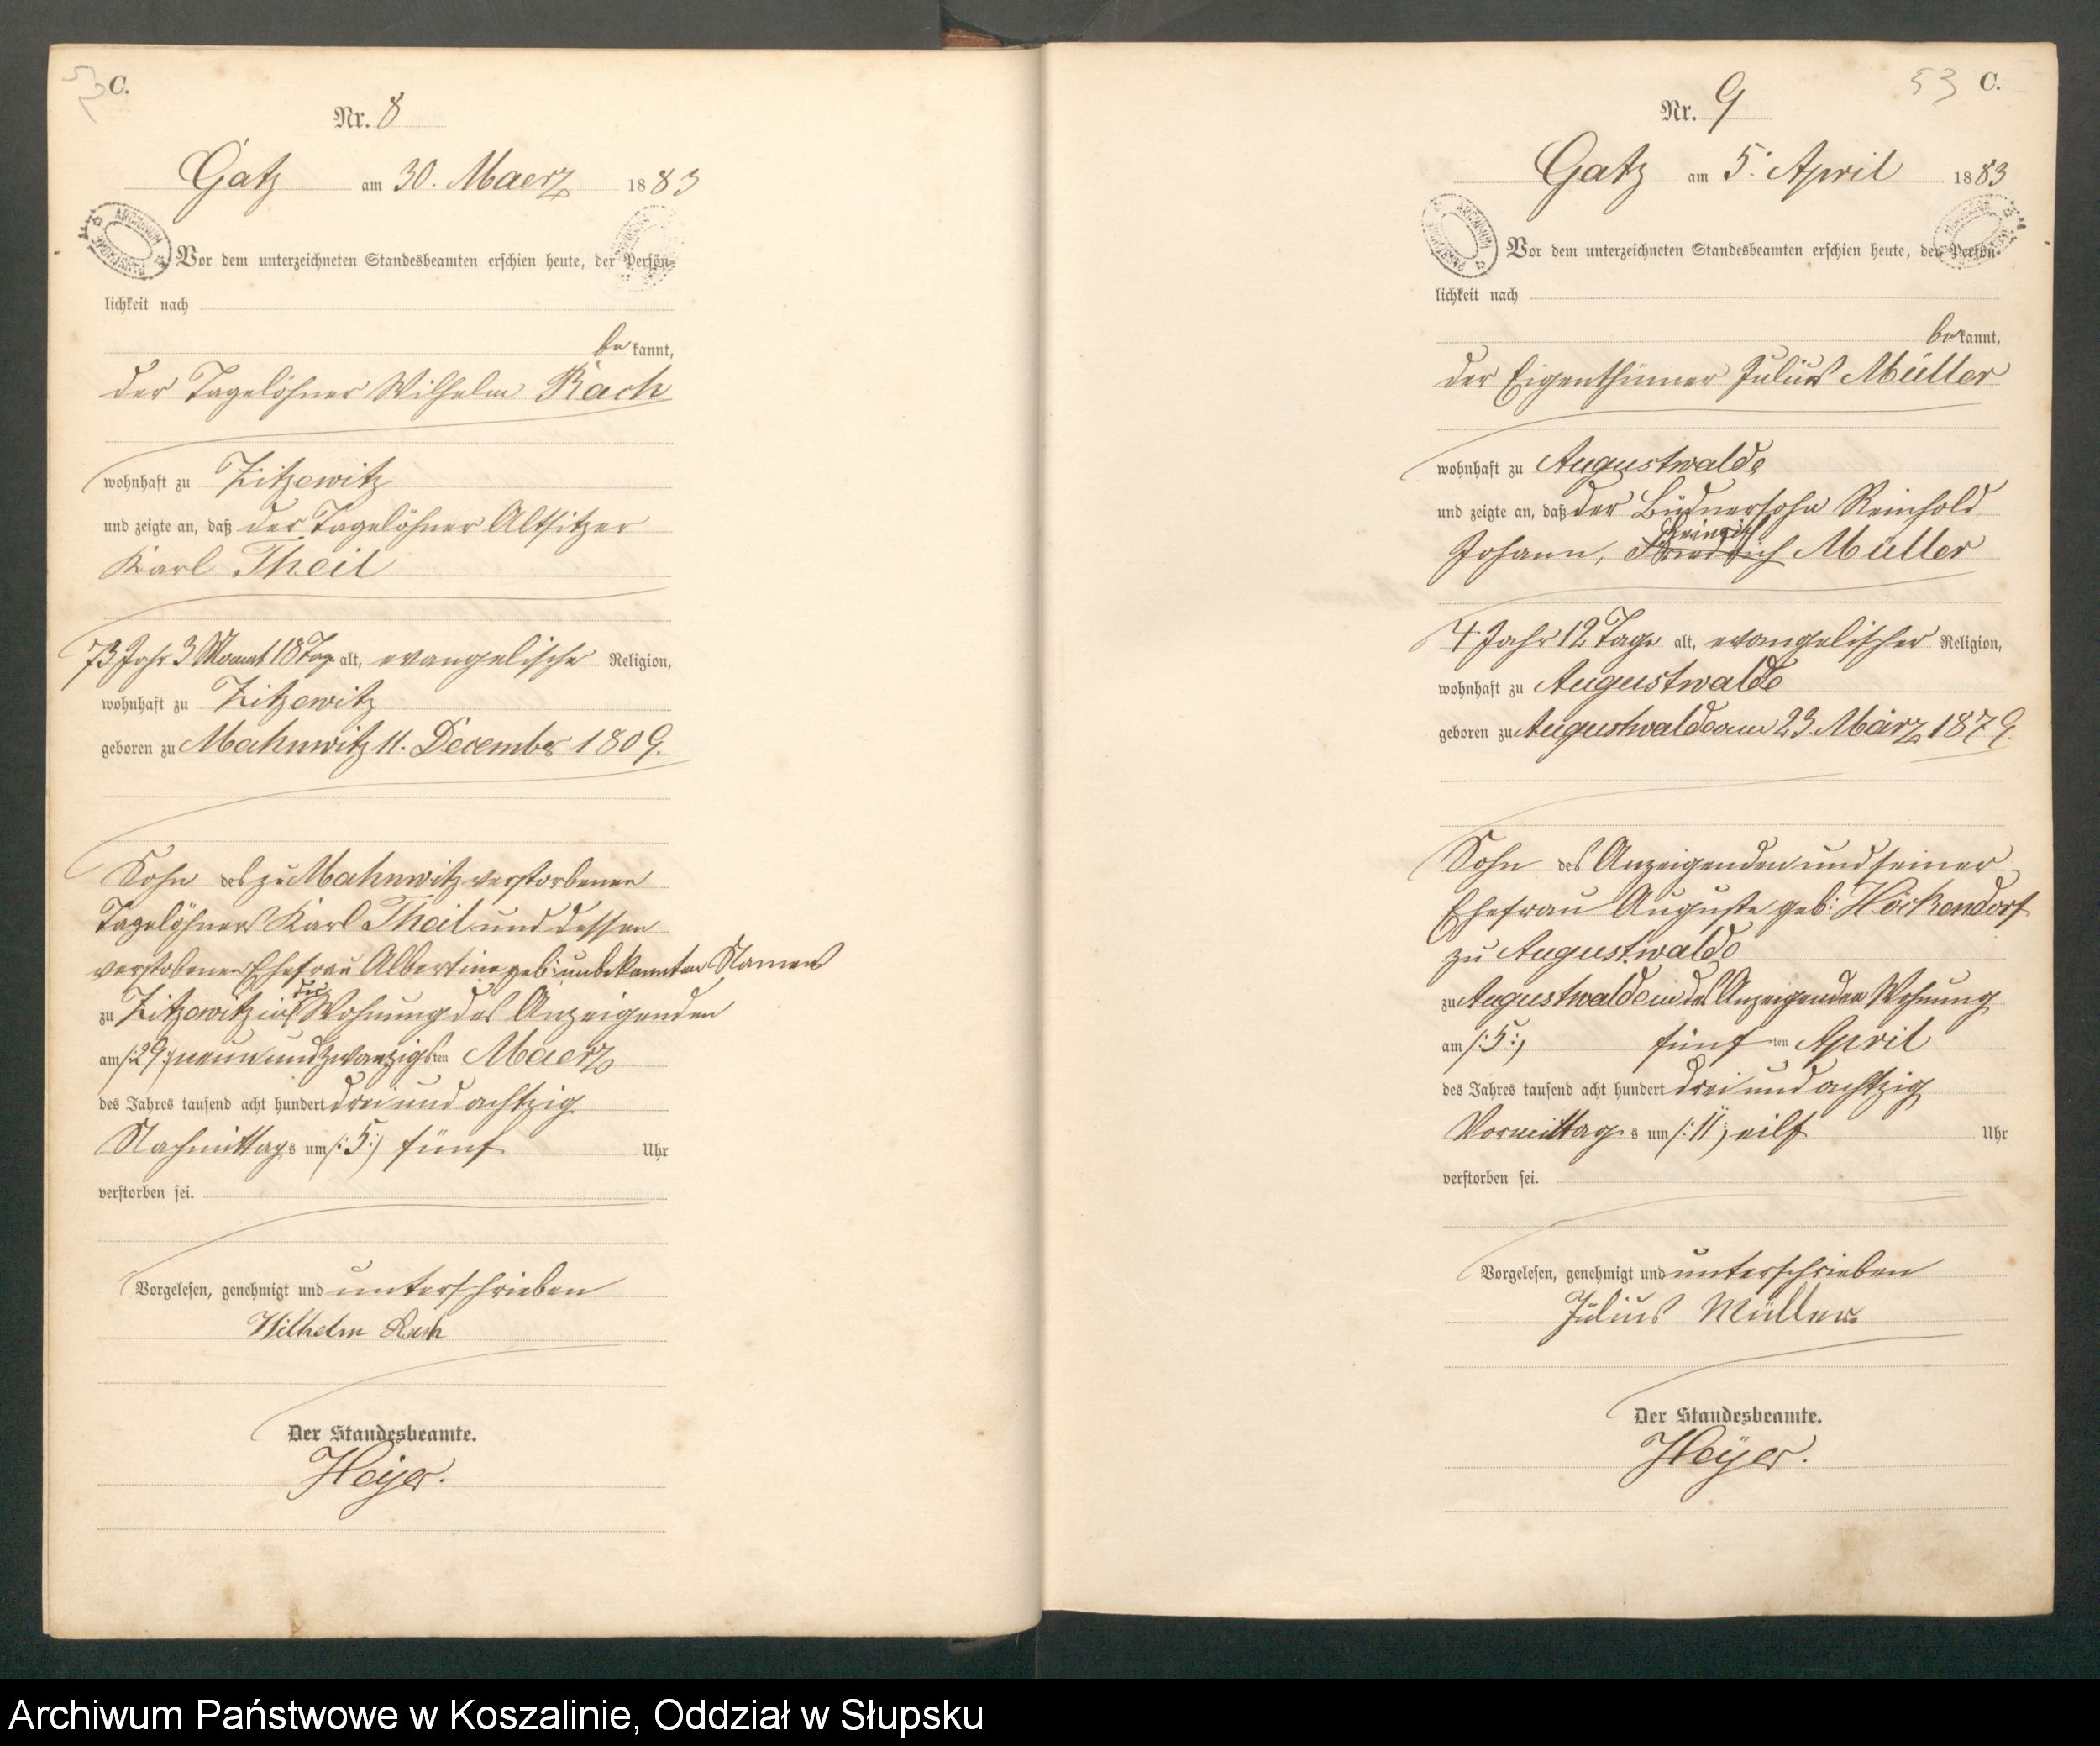 C.
Nr. 8
Gatz am 30. Maerz 1883
Vor dem unterzeichneten Standesbeamten erschien heute, der Persön-
lichkeit nach
bekannt,
der Tagelöhner Wilhelm Rach
wohnhaft zu Zitzewitz
und zeigte an, daß der Tagelöhner Altsitzer
Karl Theil
73 Jahr 3 Monat 18 Tag alt, evangelische Religion,
wohnhaft zu Zitzewitz
geboren zu Mahnwitz 11. December 1809.
Sohn des zu Mahnwitz verstorbenen
Tagelöhners Karl Theil und dessen
verstobenen Ehefrau Albertine geb: unbekannten Namens
zu Zitzewitz in der Wohnung des Anzeigenden
am /:29:/ neun und zwanzigsten Maerz
des Jahres tausend acht hundert drei und achtzig
Nachmittags um /:5:/ fünf Uhr
verstorben sei.
Vorgelesen, genehmigt und unterschrieben
Wilhelm Rach
Der Standesbeamte.
Heyer.
53 C.
Nr. 9
Gatz am 5. April 1883
Vor dem unterzeichneten Standesbeamten erschien heute, der Persön-
lichkeit nach
bekannt,
der Eigenthümer Julius Müller
wohnhaft zu Augustwalde
und zeigte an, daß der Büdnersohn Reinhold
Heinrich
Johann, Friedrich Müller
4 Jahr 12 Tage alt, evangelischer Religion,
wohnhaft zu Augustwalde
geboren zu Augustwalde am 23. März 1879.
Sohn des Anzeigenden und seiner
Ehefrau Auguste geb: Höckendorf
zu Augustwalde
zu Augustwalde in des Anzeigenden Wohnung
am /:5:/ fünften April
des Jahres tausend acht hundert drei und achtzig
Vormittags um /:11:/ eilf Uhr
verstorben sei.
Vorgelesen, genehmigt und unterschrieben
Julius Müller
Der Standesbeamte.
Heÿer.
Archiwum Państwowe w Koszalinie, Oddział w Słupsku